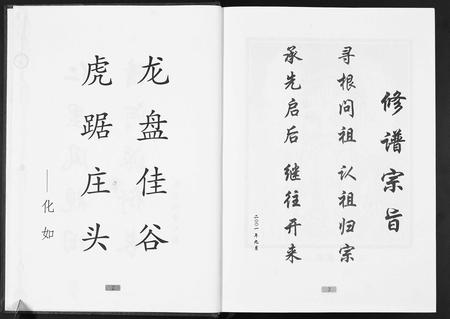 龙盘佳谷
虎踞庄头
——化如
修谱宗旨
寻根问祖 认祖归宗
承先启后 继往开来
二〇〇一年九月
2
3